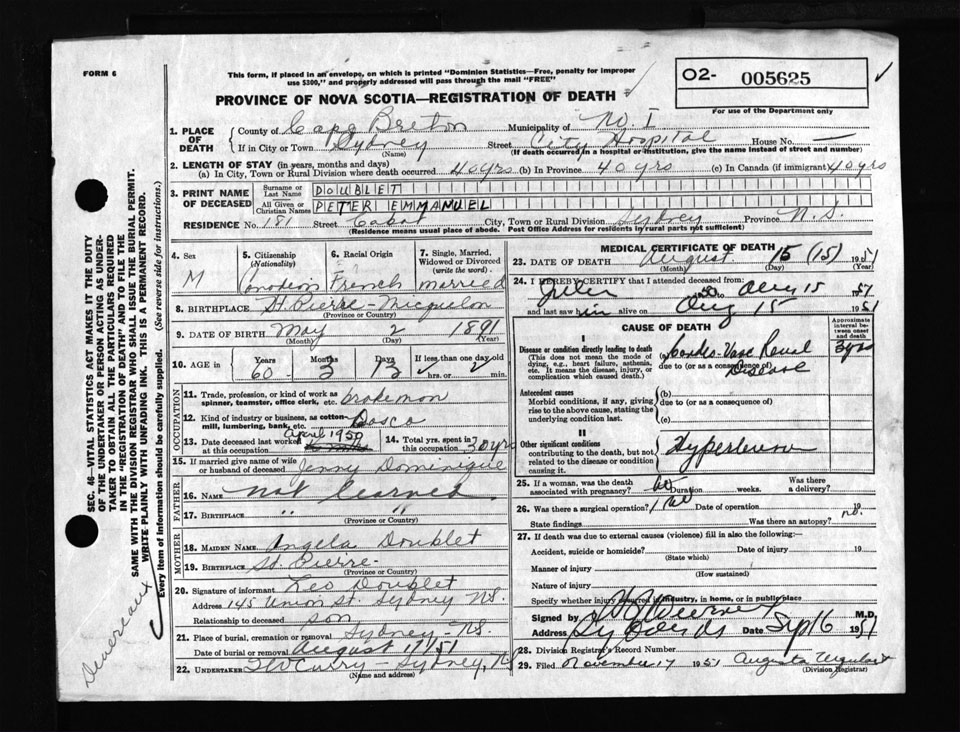 FORM 6
This form, if placed in an envelope, on which is printed "Dominion Statistics—Free, penalty for improper
use $300," and properly addressed will pass through the mail "FREE"
O2- 005625
For use of the Department only
PROVINCE OF NOVA SCOTIA—REGISTRATION OF DEATH
1. PLACE OF DEATH
County of Cape Breton Municipality of No. I
If in City or Town Sydney Street City Hospital House No. —
(Name) (If death occurred in a hospital or institution, give the name instead of street and number)
2. LENGTH OF STAY (in years, months and days)
(a) In City, Town or Rural Division where death occurred 40 yrs (b) In Province 40 yrs (c) In Canada (if immigrant) 40 yrs
3. PRINT NAME OF DECEASED
Surname or Last Name DOUBLET
All Given or Christian Names PETER EMMANUEL
RESIDENCE No. 181 Street Cabot City, Town or Rural Division Sydney Province N.S.
(Residence means usual place of abode. Post Office Address for residents in rural parts not sufficient)
4. Sex
M
5. Citizenship (Nationality)
Canadian
6. Racial Origin
French
7. Single, Married, Widowed or Divorced (write the word)
married
8. BIRTHPLACE St. Pierre - Micquelon
(Province or Country)
9. DATE OF BIRTH May 2 1891
(Month) (Day) (Year)
10. AGE in Years Months Days If less than one day old
60 3 13 hrs. or min.
OCCUPATION
11. Trade, profession, or kind of work as
spinner, teamster, office clerk, etc. brakeman
12. Kind of industry or business, as cotton-
mill, lumbering, bank, etc. Dosco
13. Date deceased last worked at this occupation April 1950
14. Total yrs. spent in this occupation 30 yrs
15. If married give name of wife
or husband of deceased Jenny Dominique
FATHER
16. NAME not learned
17. BIRTHPLACE " "
(Province or Country)
MOTHER
18. MAIDEN NAME Angela Doublet
19. BIRTHPLACE St. Pierre -
(Province or Country)
20. Signature of informant Leo Doublet
Address 145 Union St. Sydney NS.
Relationship to deceased son
21. Place of burial, cremation or removal Sydney - NS.
Date of burial or removal August 17/51
22. UNDERTAKER TW Curry - Sydney, NS
(Name and address)
MEDICAL CERTIFICATE OF DEATH
23. DATE OF DEATH August 15 (15) 1951
(Month) (Day) (Year)
24. I HEREBY CERTIFY that I attended deceased from:
to Aug 15 1951
and last saw him alive on Aug 15 1951
CAUSE OF DEATH
Approximate interval between onset and death
I
Disease or condition directly leading to death
(This does not mean the mode of
dying, e.g., heart failure, asthenia,
etc. It means the disease, injury, or
complication which caused death.)
Cardio-Vasc Renal Disease
due to (or as a consequence of)
3 yrs
Antecedent causes
Morbid conditions, if any, giving
rise to the above cause, stating the
underlying condition last.
(b)
due to (or as a consequence of)
(c)
II
Other significant conditions
contributing to the death, but not
related to the disease or condition
causing it.
25. If a woman, was the death
associated with pregnancy? no Duration weeks. Was there a delivery?
26. Was there a surgical operation? no Date of operation
State findings Was there an autopsy? no.
27. If death was due to external causes (violence) fill in also the following:—
Accident, suicide or homicide? Date of injury 19
(State which)
Manner of injury
(How sustained)
Nature of injury
Specify whether injury occurred in industry, in home, or in public place
Signed by M.D.
Address Sydney NS Date Sep 16 1951
28. Division Registrar's Record Number
29. Filed November 17 1951 Augusta Urquhart
(Division Registrar)
SEC. 46—VITAL STATISTICS ACT MAKES IT THE DUTY
OF THE UNDERTAKER OR PERSON ACTING AS UNDER-
TAKER TO OBTAIN ALL THE PARTICULARS REQUIRED
IN THE "REGISTRATION OF DEATH" AND TO FILE THE
SAME WITH THE DIVISION REGISTRAR WHO SHALL ISSUE THE BURIAL PERMIT.
WRITE PLAINLY WITH UNFADING INK. THIS IS A PERMANENT RECORD.
Every item of information should be carefully supplied. (See reverse side for instructions.)
Devereaux